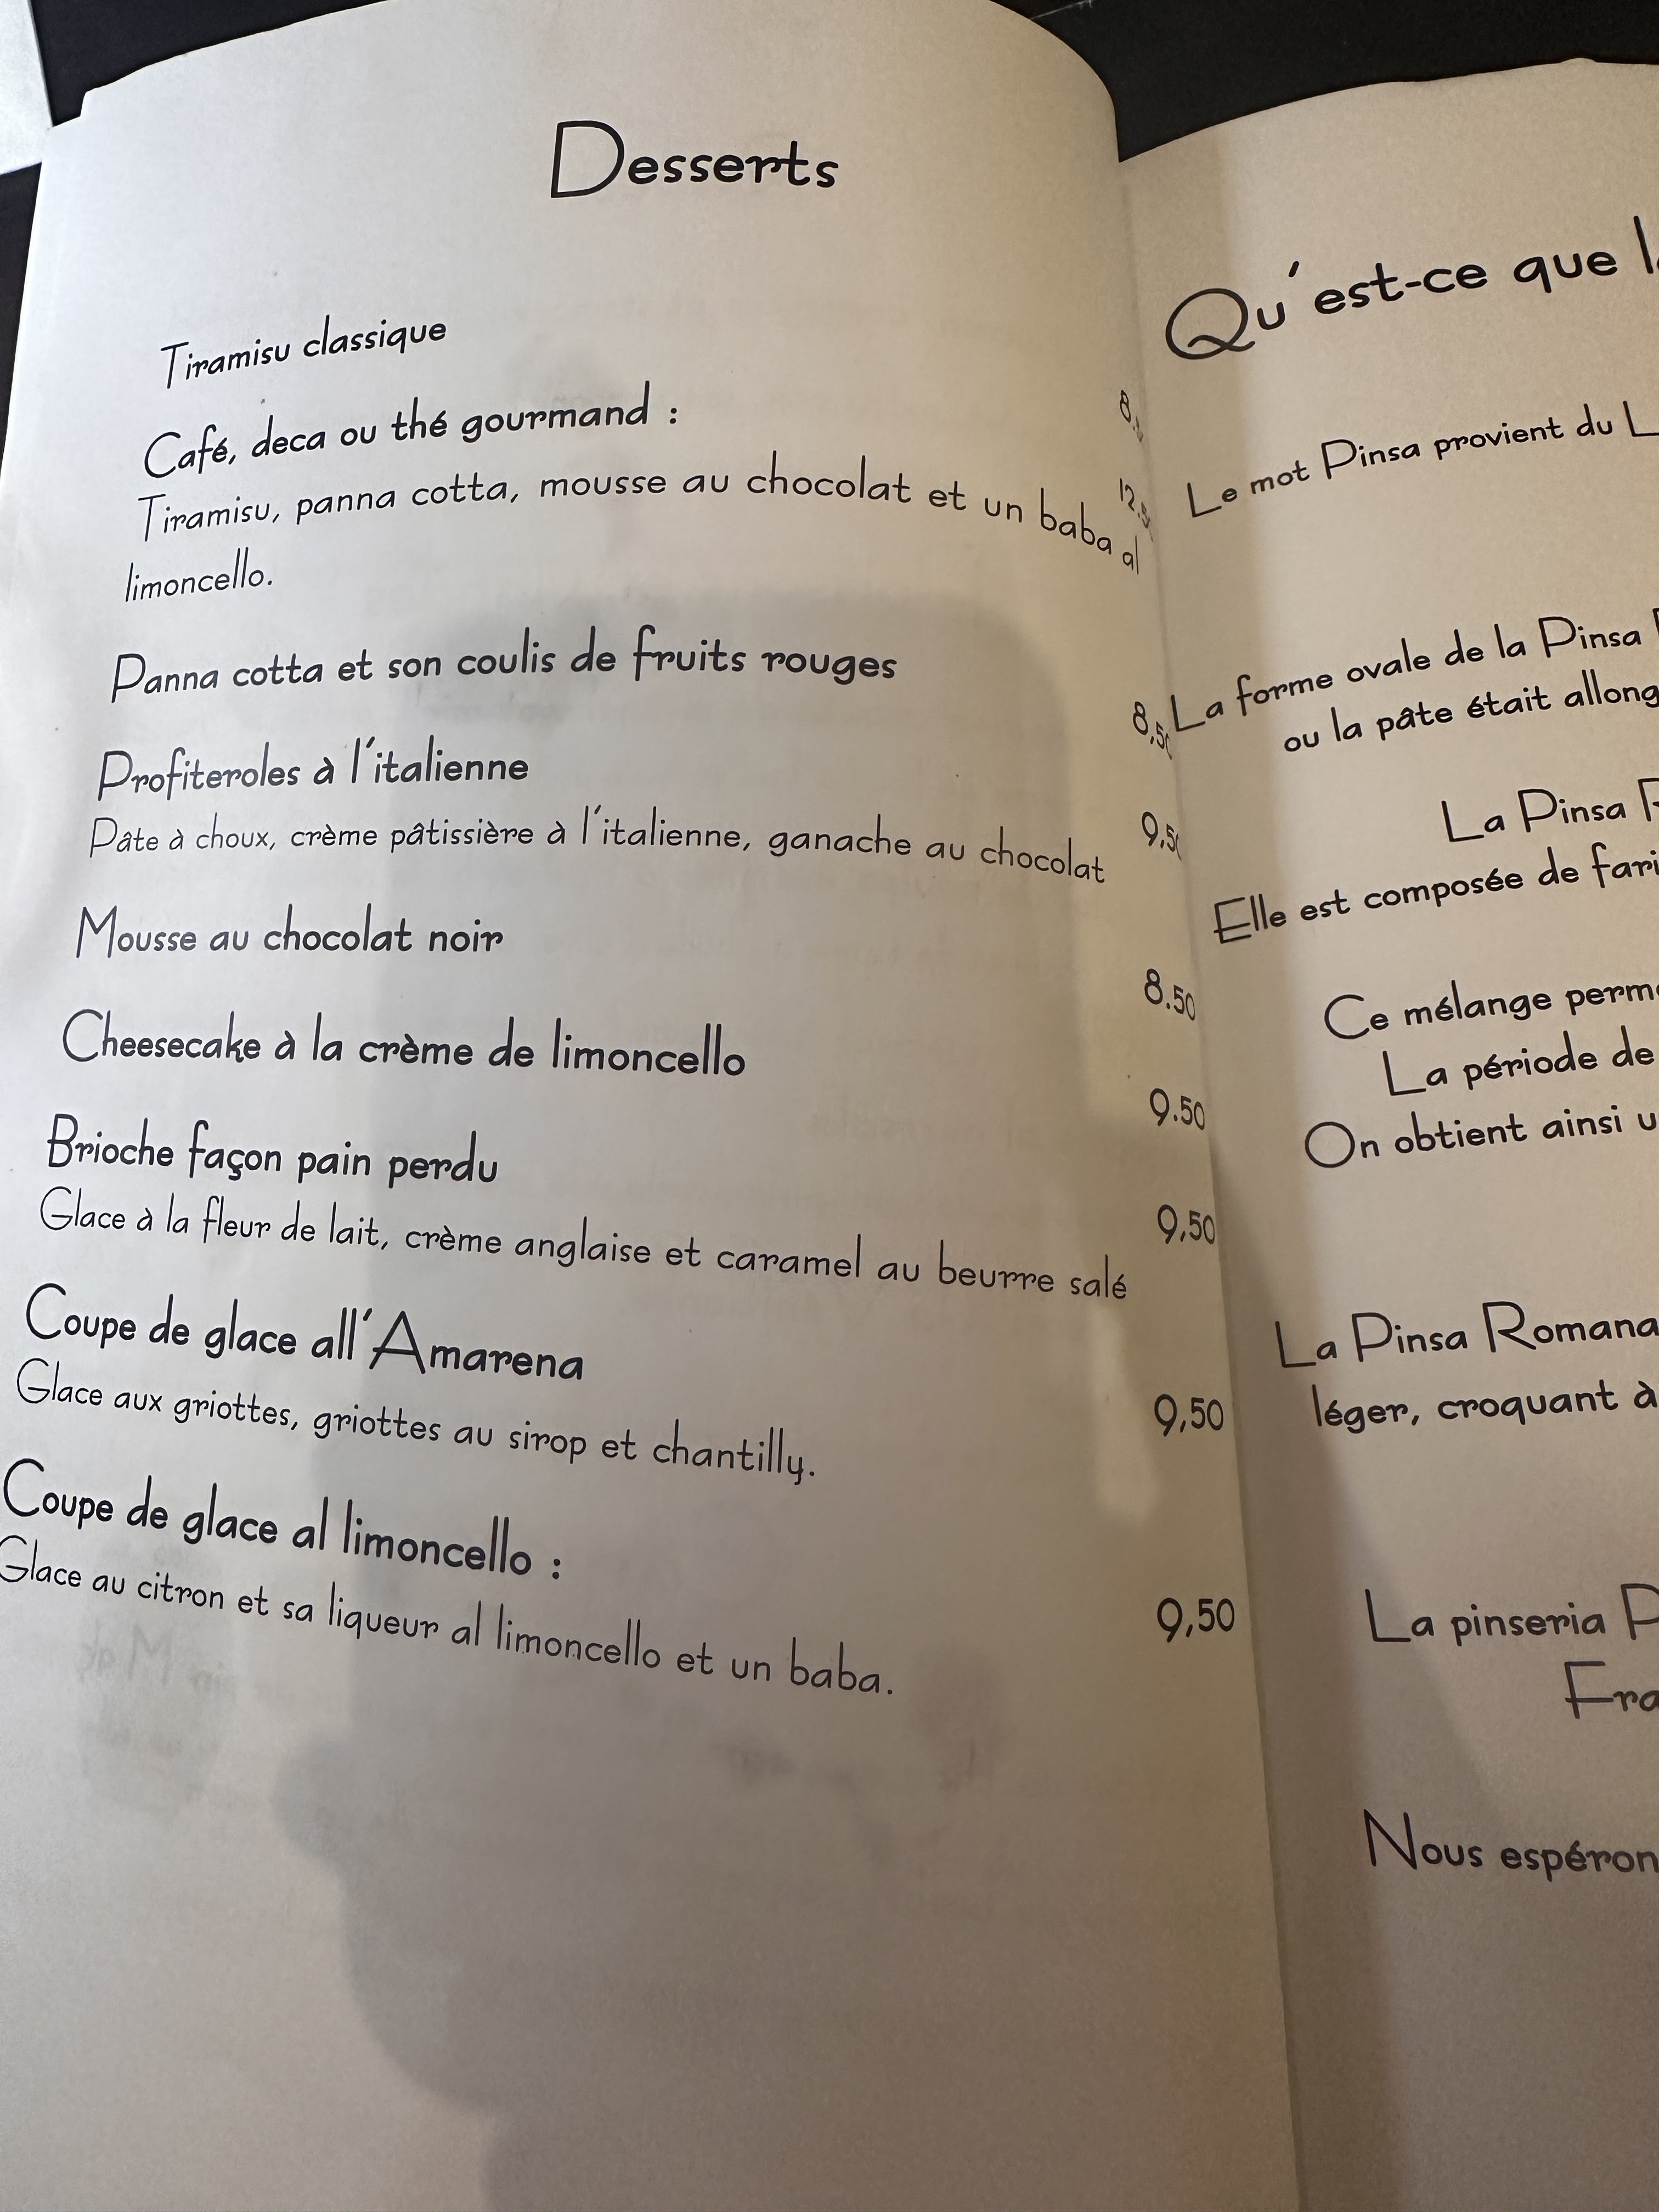 Desserts
Tiramisu classique
Café, deca ou thé gourmand :
Tiramisu, panna cotta, mousse au chocolat et un baba al
limoncello.
Panna cotta et son coulis de fruits rouges 8,50
Profiteroles à l'italienne 9,50
Pâte à choux, crème pâtissière à l'italienne, ganache au chocolat
Mousse au chocolat noir 8.50
Cheesecake à la crème de limoncello 9.50
Brioche façon pain perdu 9,50
Glace à la fleur de lait, crème anglaise et caramel au beurre salé
Coupe de glace all'Amarena 9,50
Glace aux griottes, griottes au sirop et chantilly.
Coupe de glace al limoncello : 9,50
Glace au citron et sa liqueur al limoncello et un baba.
Qu'est-ce que
Le mot Pinsa provient du
La forme ovale de la Pinsa
ou la pâte était
La Pinsa
Elle est composée de
Ce mélange
La période de
On obtient ainsi
La Pinsa Romana
léger, croquant à
La pinseria
Nous